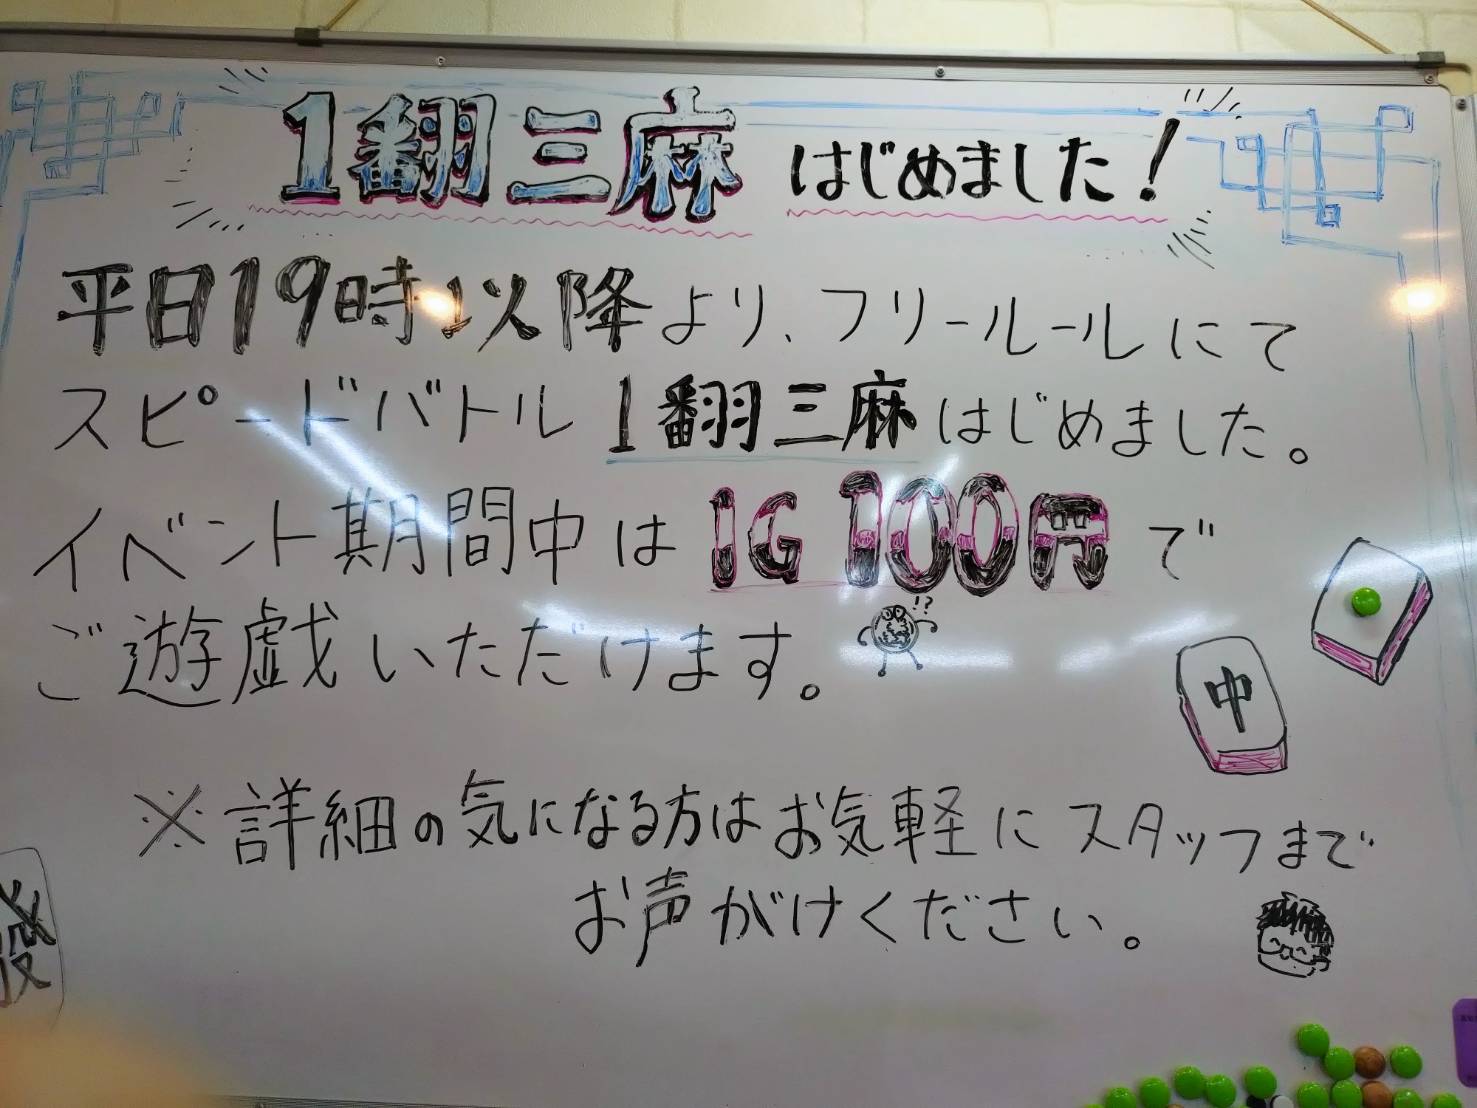 1翻三麻はじめました!
平日19時以降より、フリールールにて
スピードバトル1翻三麻はじめました。
イベント期間中は1G100円で
ご遊戯いただけます。
!?
中
※詳細の気になる方はお気軽にスタッフまで
お声がけください。